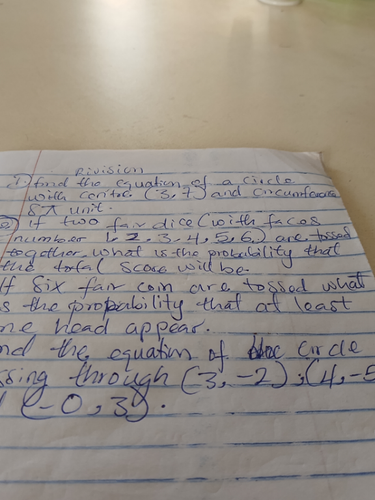 Rivision
1) find the equation of a circle
with centre (3,7) and circumference
8π unit.
2) If two fair dice (with faces
number 1, 2, 3, 4, 5, 6,) are tossed
together, what is the probability that
the total score will be.
If six fair coin are tossed what
is the propability that at least
one Head appear.
nd the equation of the circle
ssing through (3, -2); (4, -5
(-0, 3).